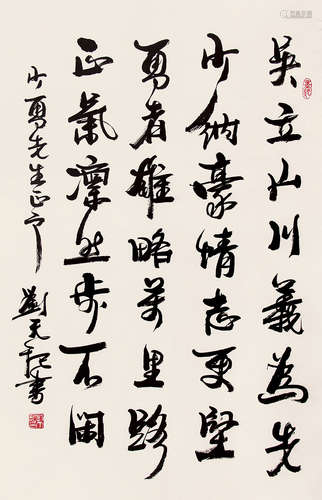 吳立山川義為先
少納豪情志更堅
勇者雄略萬里路
正氣凜然步不闌
少勇先生正
劉天書